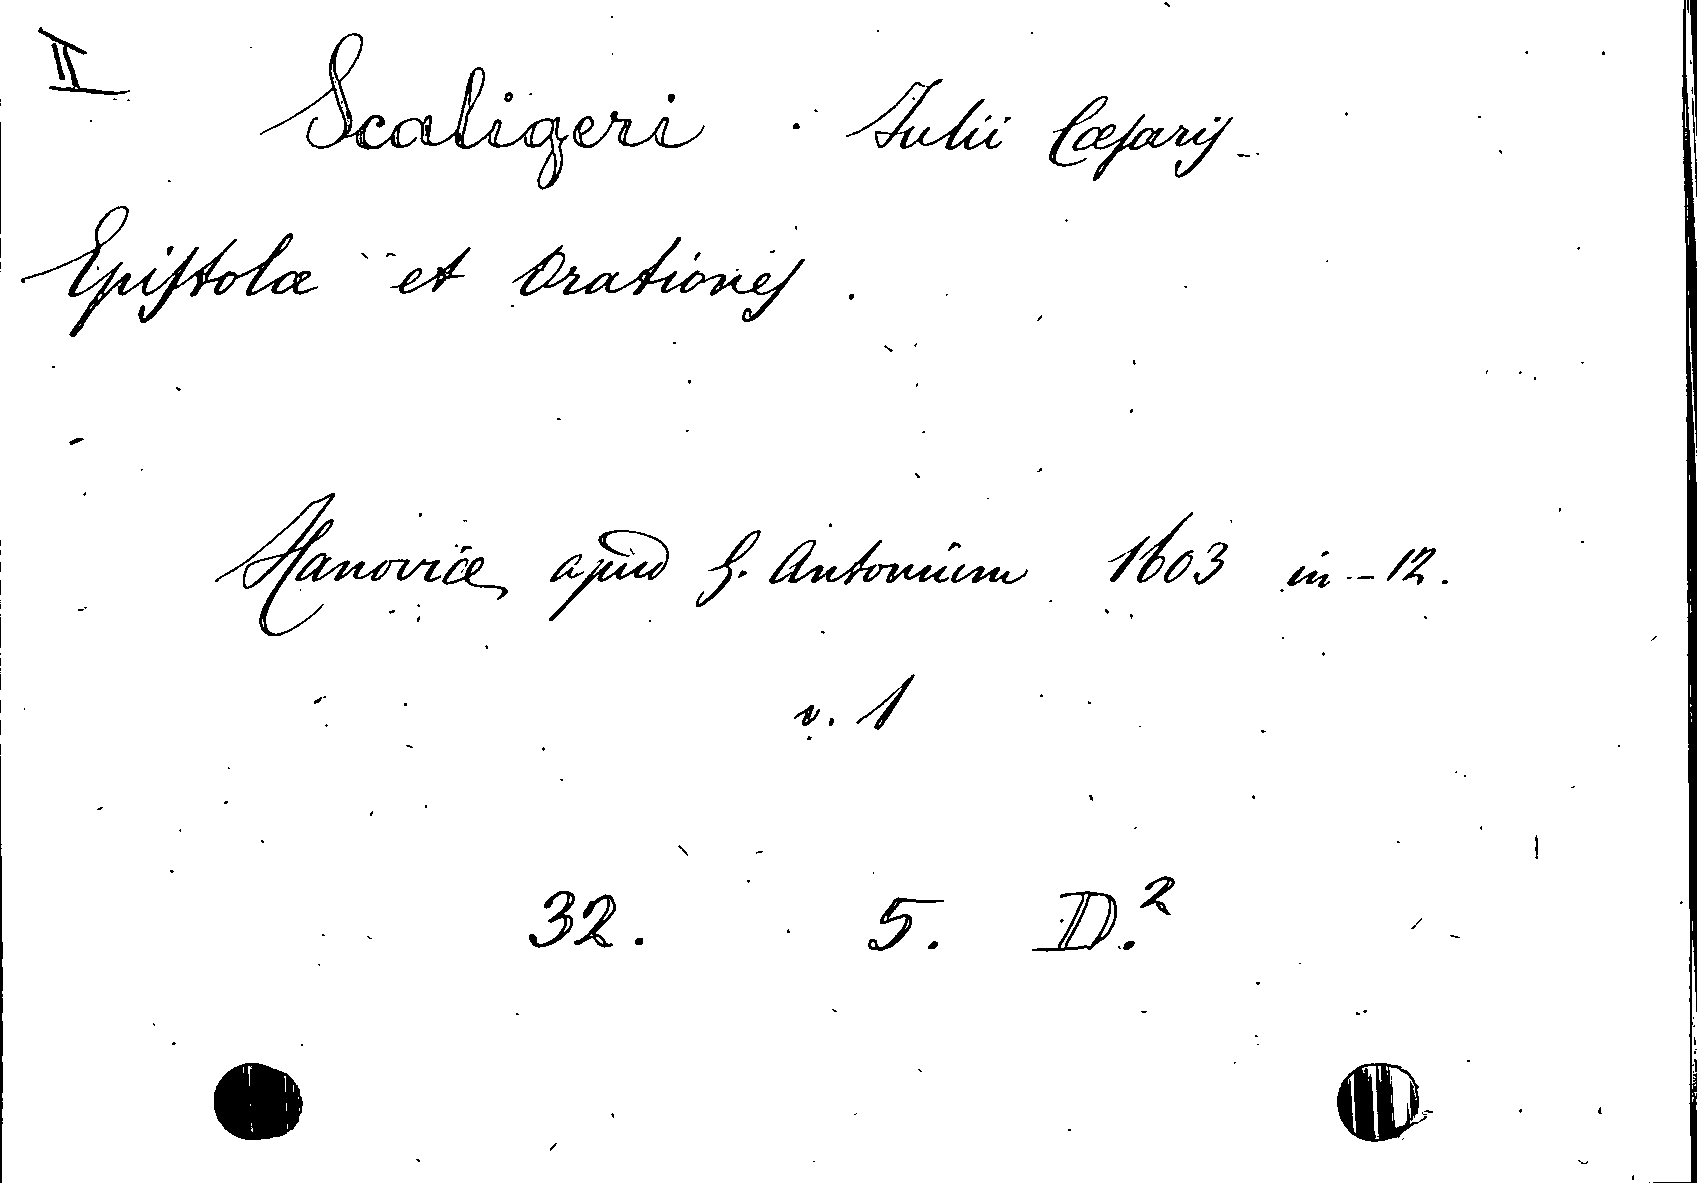 II
Scaligeri Julii Cæsaris
Epistolæ et Orationes
Hanoviæ apud G. Antonium 1603 in-12.
v. 1
32. 5. D.²